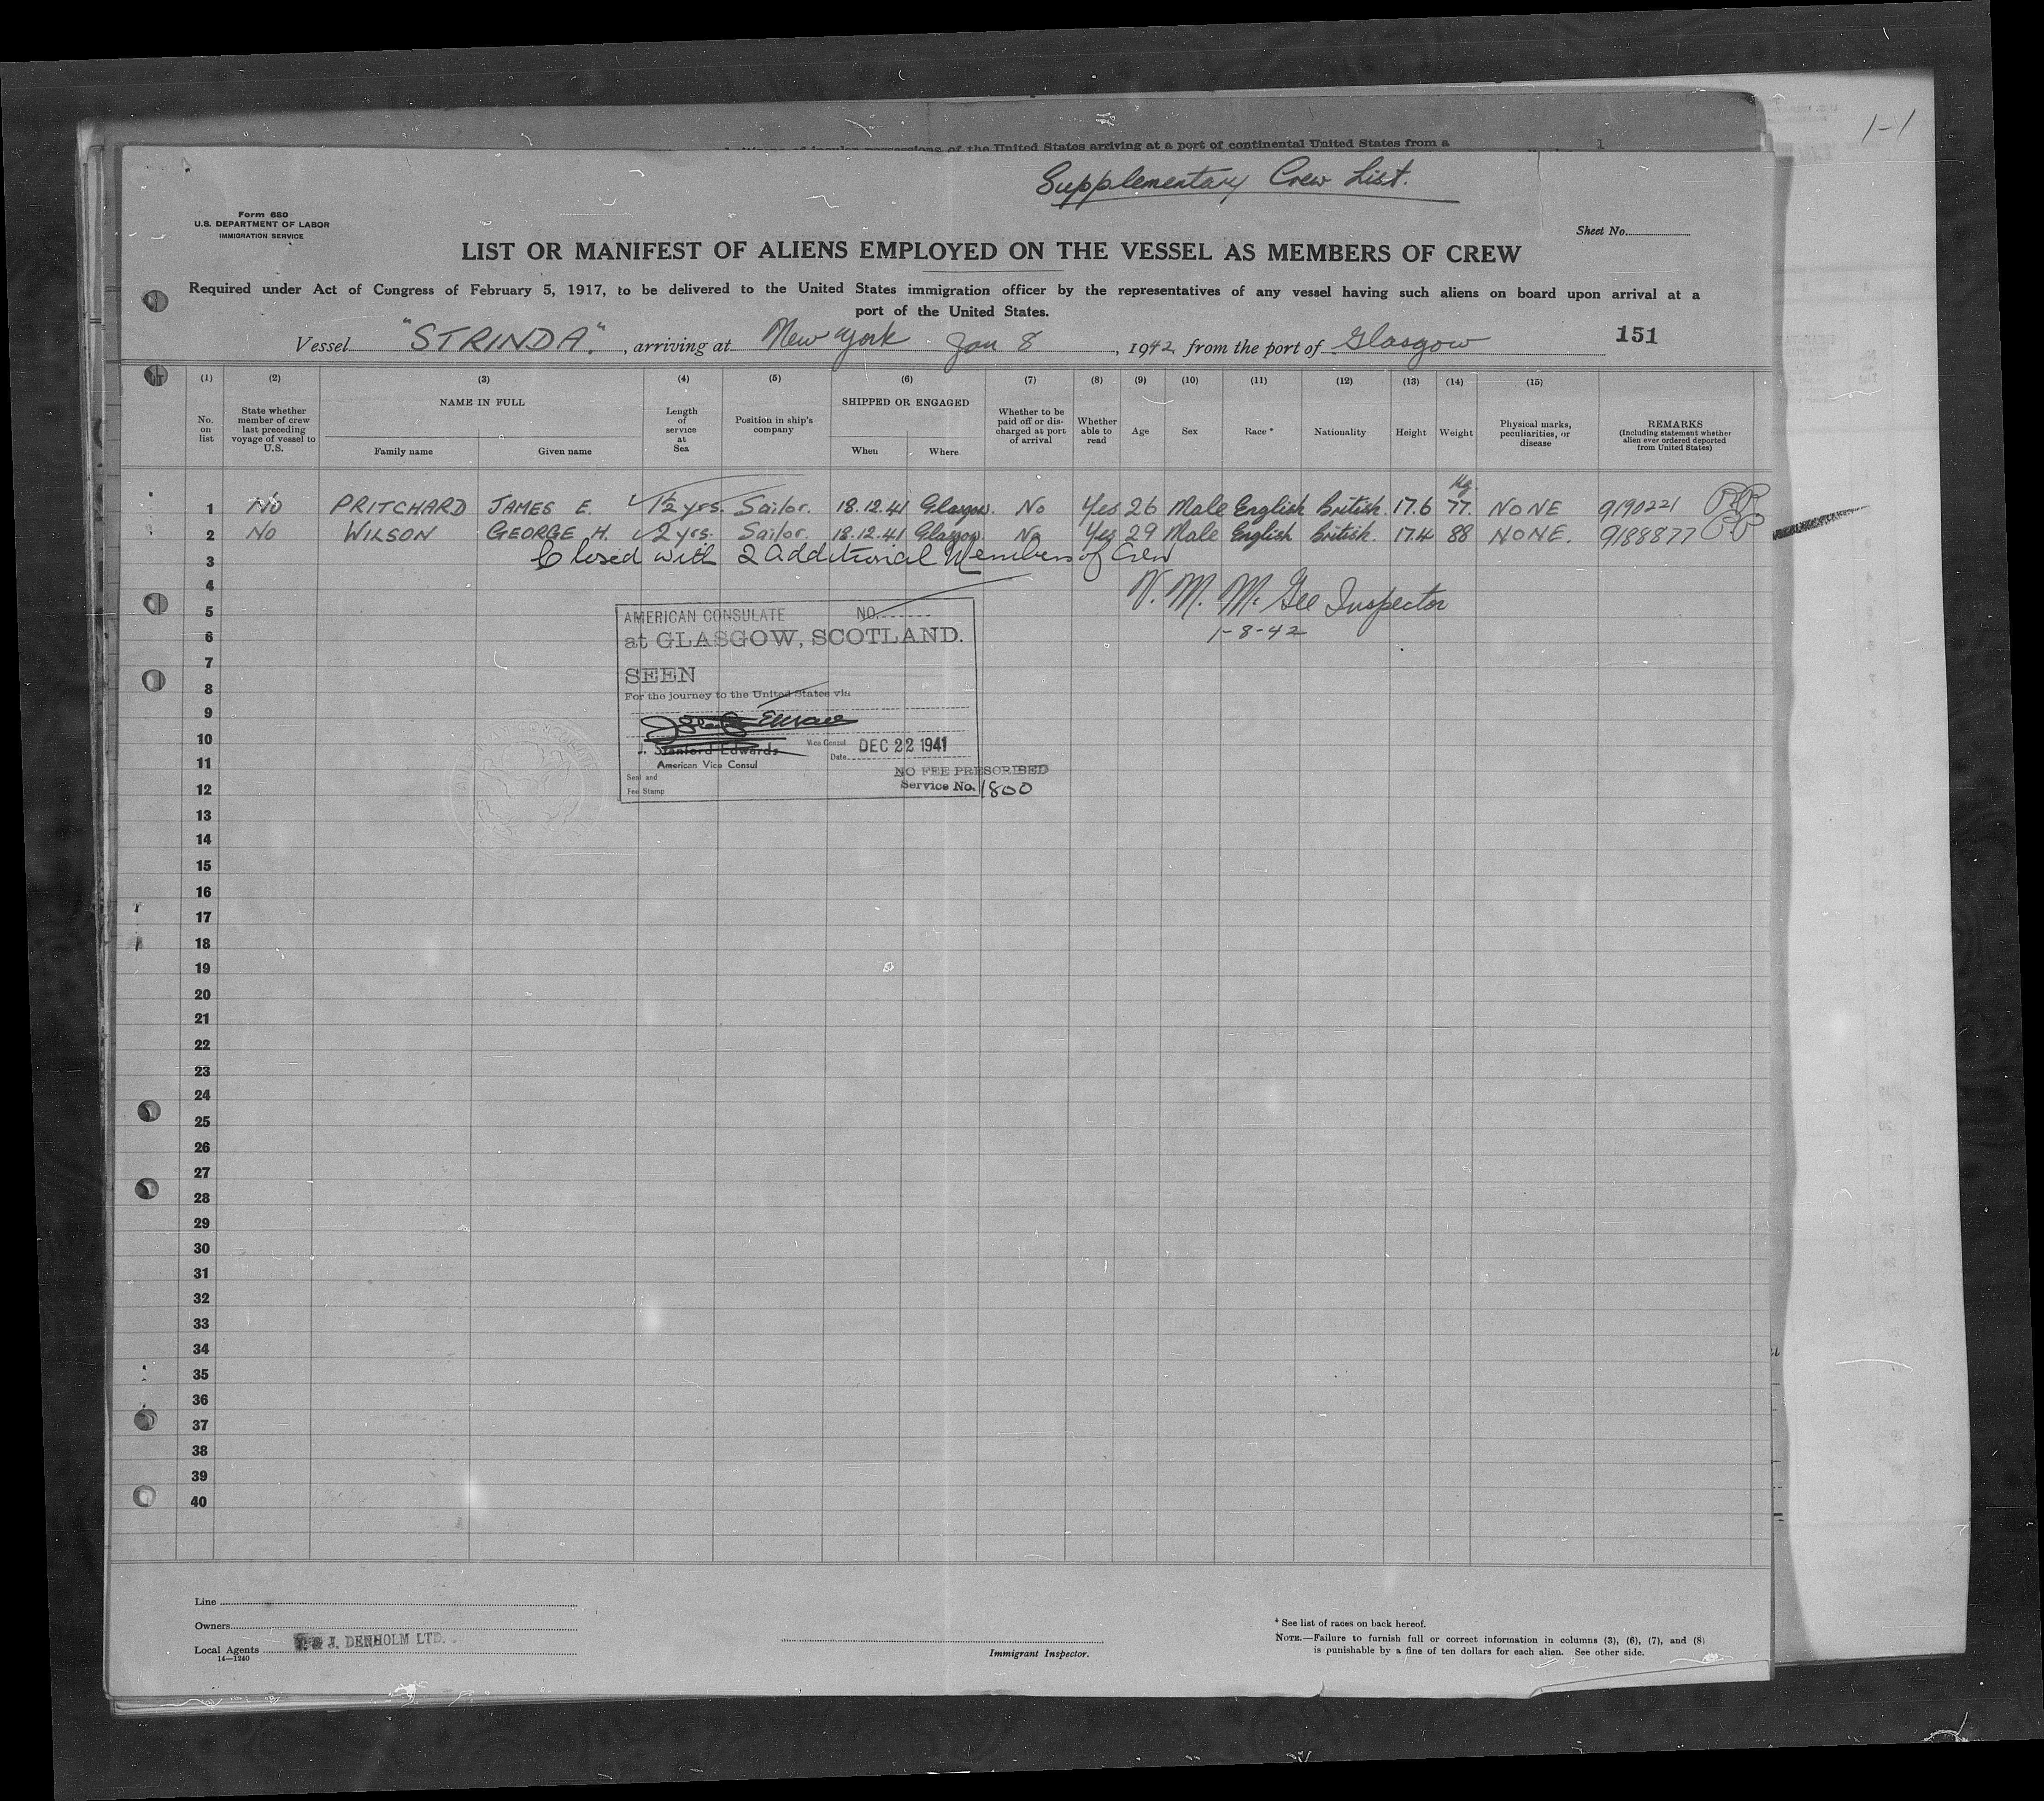 of insular possessions of the United States arriving at a port of continental United States from a
1
1-1
Supplementary Crew List.
Form 680
U.S. DEPARTMENT OF LABOR
IMMIGRATION SERVICE
Sheet No.
LIST OR MANIFEST OF ALIENS EMPLOYED ON THE VESSEL AS MEMBERS OF CREW
Required under Act of Congress of February 5, 1917, to be delivered to the United States immigration officer by the representatives of any vessel having such aliens on board upon arrival at a
port of the United States.
Vessel "STRINDA", arriving at New York Jan 8, 1942, from the port of Glasgow 151
(1) (2) (3) (4) (5) (6) (7) (8) (9) (10) (11) (12) (13) (14) (15)
No. on list
State whether member of crew last preceding voyage of vessel to U.S.
NAME IN FULL
Family name Given name
Length of service at Sea
Position in ship's company
SHIPPED OR ENGAGED
When Where
Whether to be paid off or discharged at port of arrival
Whether able to read
Age
Sex
Race *
Nationality
Height
Weight
Physical marks, peculiarities, or disease
REMARKS
(Including statement whether alien ever ordered deported from United States)
Kg.
1 No PRITCHARD JAMES E. 1½ yrs. Sailor. 18.12.41 Glasgow. No Yes 26 Male English British. 17.6 77. NONE 9190221 PP
2 No WILSON GEORGE H. 2 yrs. Sailor. 18.12.41 Glasgow. No Yes 29 Male English British. 17.4 88 NONE. 9188877 PP
3 Closed with 2 Additional Members of Crew
4
V. M. McGee Inspector
5
6
1-8-42
AMERICAN CONSULATE NO.
at GLASGOW, SCOTLAND.
SEEN
For the journey to the United States via
Stanford Edwards
Vice Consul
American Vice Consul
Date DEC 22 1941
Seal and
Fee Stamp
NO FEE PRESCRIBED
Service No. 1800
7
8
9
10
11
12
13
14
15
16
17
18
19
20
21
22
23
24
25
26
27
28
29
30
31
32
33
34
35
36
37
38
39
40
Line
Owners
Local Agents J. & J. DENHOLM LTD.
14—1240
Immigrant Inspector.
* See list of races on back hereof.
NOTE.—Failure to furnish full or correct information in columns (3), (6), (7), and (8)
is punishable by a fine of ten dollars for each alien. See other side.